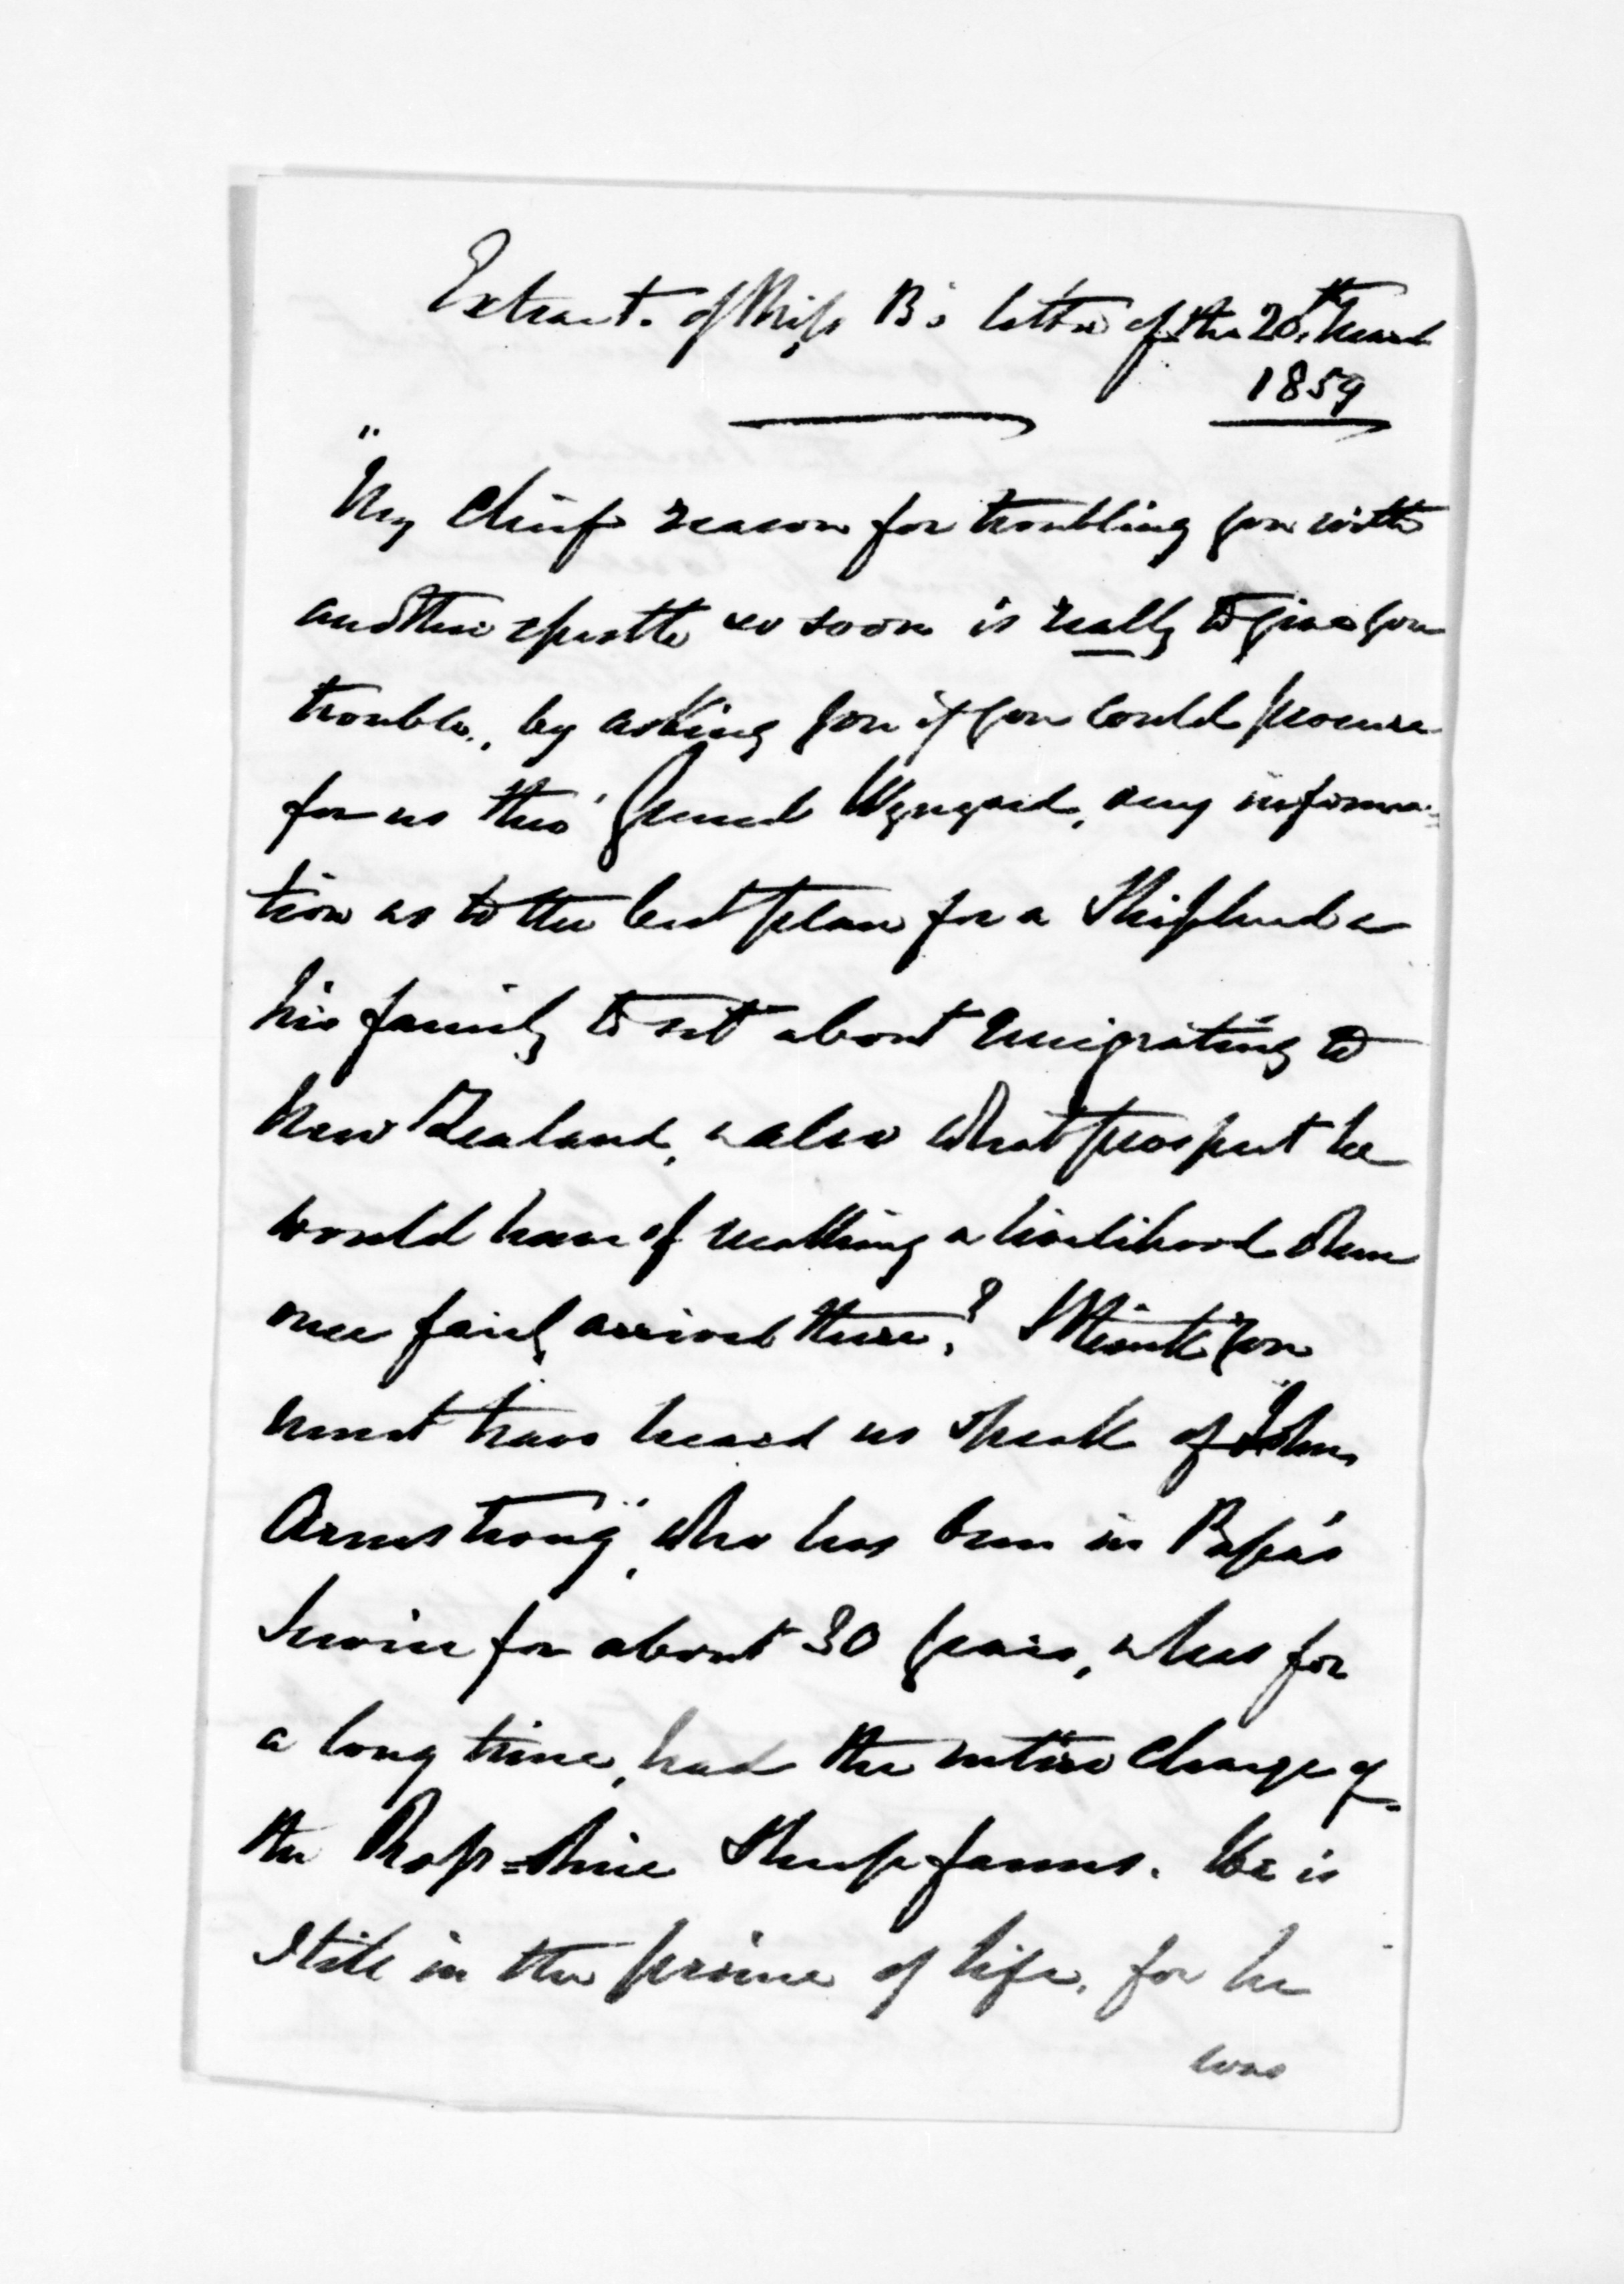 Extract of Miss B's letter of the 20th. March
1859
"
My chief reason for troubling you with
another epistle so soon is really to give you
trouble, by asking you if you could procure
for us thro' General Wynyard, any informa-
tion as to the best plan for a Shepherd &
his family to set about Emigrating to
New Zealand, & also what prospect he
would have of making a livelihood when
once fairly arrived there? I think you
must have heard us speak of "John
Armstrong", who has been in Papa's
Service for about 30 years, & has for
a long time, had the entire charge of
the Ross-shire Sheep farms. He is
Still in the prime of life, for he
was